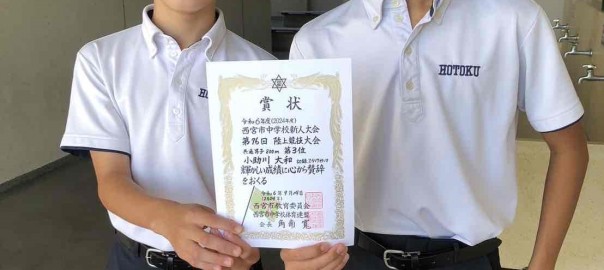 HOTOKU
賞状
令和6年度(2024年度)
西宮市中学校新人大会
第76回 陸上競技大会
共通男子 800m 第3位
小助川 大和
輝かしい成績に心から賛辞
をおくる
令和6年9月
西宮市教育委員会
西宮市中学校体育連盟
会長 角南 寛